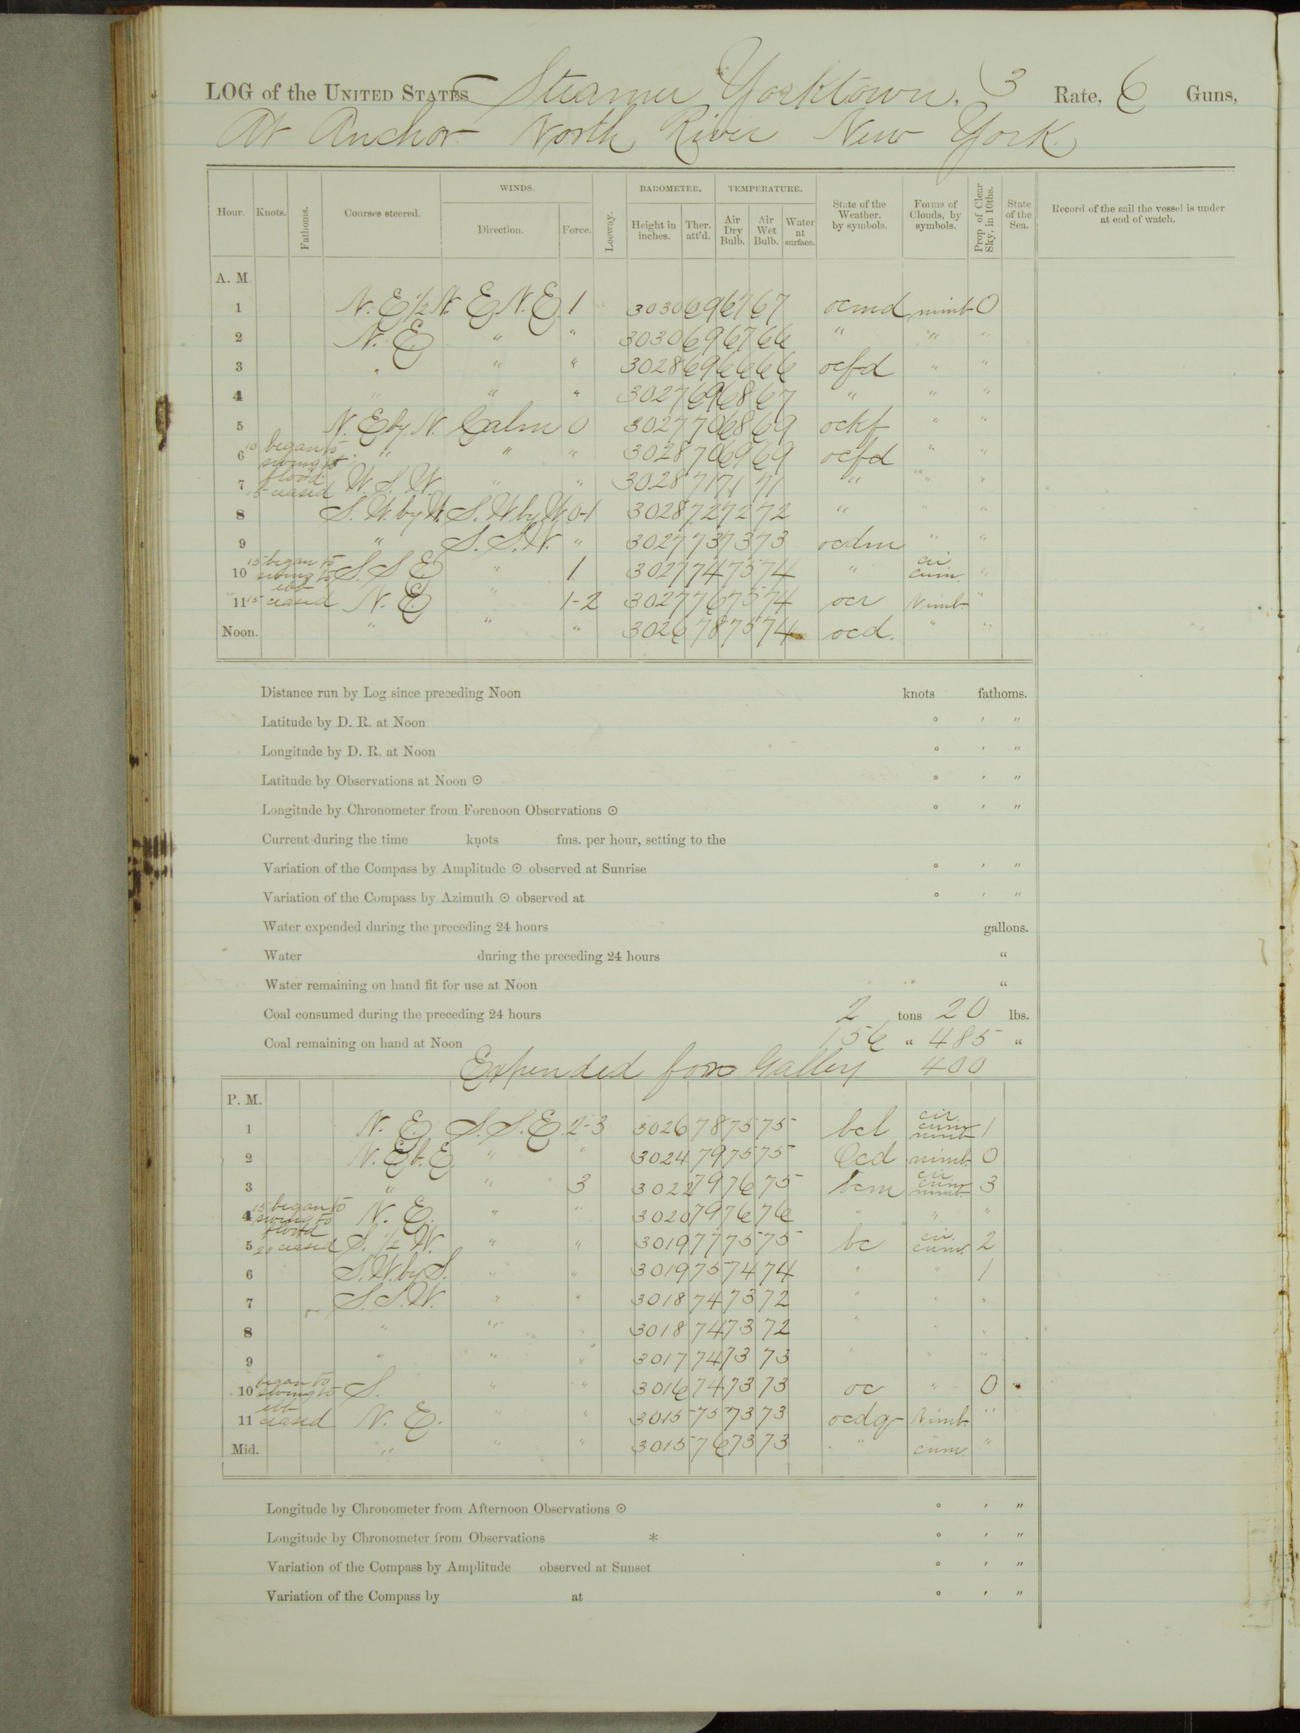 LOG of the UNITED STATES Steamer Yorktown, 3 Rate, 6 Guns,
At Anchor North River New York.
Hour. Knots. Fathoms. Courses steered. WINDS. Direction. Force. Leeway. BAROMETER. Height in inches. Ther. att'd. TEMPERATURE. Air Dry Bulb. Air Wet Bulb. Water at surface. State of the Weather. by symbols. Forms of Clouds, by symbols. Prop of Clear Sky, in 10ths. State of the Sea. Record of the sail the vessel is under at end of watch.
A. M.
1 N. E ½ N. E N. E 1 3030 69 67 67 ocmd nimb 0
2 N. E. " " 3030 69 67 66 " " "
3 " " " 3028 69 66 66 ocfd " "
4 " " " 3027 69 68 67 " " "
5 N. E by N. Calm 0 3027 70 68 69 ockf " "
6 10 began to swing to " " " 3028 70 69 69 ocfd " "
7 flood 5 ceased W. S. W. " " 3028 71 71 71 " " "
8 S. W. by W. S. W. by W. 0-1 3028 72 72 72 " " "
9 " S. S. W. " 3027 73 73 73 ocdm " "
10 15 began to swing to S. S E " 1 3027 74 75 74 " cir cum. "
11 ebb 15 ceased N. E. " 1-2 3027 76 75 74 ocr Nimb "
Noon. " " " 3026 78 75 74 ocd. " "
Distance run by Log since preceding Noon knots fathoms.
Latitude by D. R. at Noon ° ′ ″
Longitude by D. R. at Noon ° ′ ″
Latitude by Observations at Noon ☉ ° ′ ″
Longitude by Chronometer from Forenoon Observations ☉ ° ′ ″
Current during the time knots fms. per hour, setting to the
Variation of the Compass by Amplitude ☉ observed at Sunrise ° ′ ″
Variation of the Compass by Azimuth ☉ observed at ° ′ ″
Water expended during the preceding 24 hours gallons.
Water during the preceding 24 hours "
Water remaining on hand fit for use at Noon "
Coal consumed during the preceding 24 hours 2 tons 20 lbs.
Coal remaining on hand at Noon 156 " 485 "
Expended for Galley 400
P. M.
1 N. E. S. S. E. 2-3 3026 78 75 75 bcl cir cum nimb 1
2 N. E b. E " " 3024 79 75 75 Ocd nimb 0
3 " " 3 3022 79 76 75 bcm cir cum nimb 3
4 15 began to swing to N. E. " " 3020 79 76 76 " " "
5 flood 20 ceased S. ½ W. " " 3019 77 75 75 bc cir cum. 2
6 S. W. by S. " " 3019 75 74 74 " " 1
7 S. S. W. " " 3018 74 73 72 " " "
8 " " " 3018 74 73 72 " " "
9 " " " 3017 74 73 73 " " "
10 began to swing to S. " " 3016 74 73 73 oc " 0
11 ebb ceased N. E. " " 3015 75 73 73 ocdg Nimb "
Mid. " " " 3015 76 73 73 " cum "
Longitude by Chronometer from Afternoon Observations ☉ ° ′ ″
Longitude by Chronometer from Observations * ° ′ ″
Variation of the Compass by Amplitude observed at Sunset ° ′ ″
Variation of the Compass by at ° ′ ″